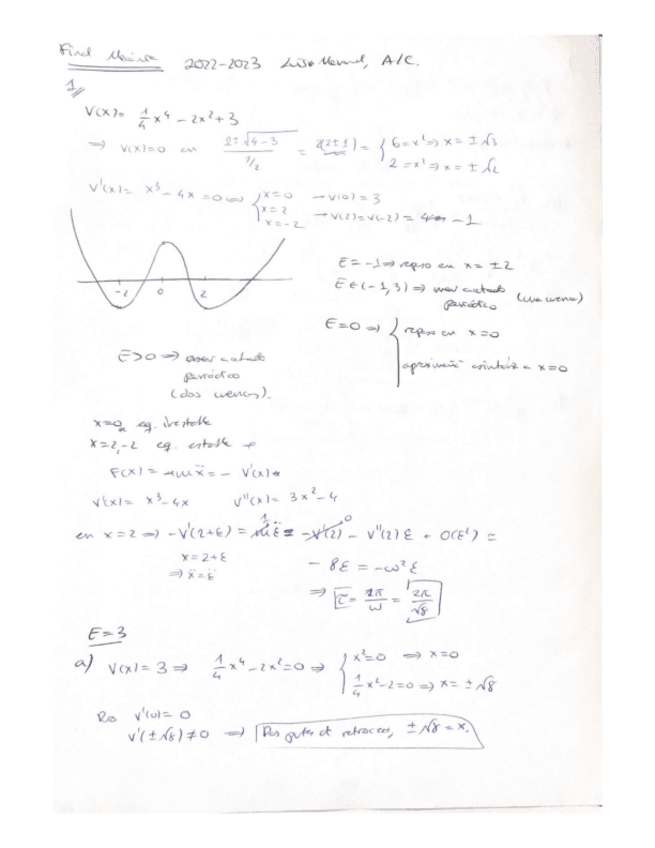 Final 2022-2023 Luis Manuel, A/C.
1//
V(x) = 1/4 x⁴ - 2x² + 3
⇒ V(x)=0 en (2 ± √(4-3))/(1/2) = 2(2±1) = { 6 = x² ⇒ x = ±√3
2 = x² ⇒ x = ±√2
V'(x) = x³ - 4x = 0 ⇔ { x=0 → V(0) = 3
x=2 → V(2)=V(-2) = -1
x=-2
-2 0 2
E = -1 ⇒ reposo en x = ±2
E ∈ (-1, 3) ⇒ mov acotado periódico (una cuenca)
E=0 ⇒ { reposo en x=0
aproximación asintótica a x=0
E>0 ⇒ mov acotado
periódico
(dos cuencas).
x=0, eq. inestable
x=2,-2 eq. estable
F(x) = m ẍ = - V'(x)
V'(x) = x³ - 4x V''(x) = 3x² - 4
en x=2 ⇒ -V'(2+ε) = m ε̈ = -V'(2) - V''(2) ε + O(ε²) ≃
x = 2+ε
⇒ ẍ = ε̈
- 8ε = -ω² ε
⇒ τ = 2π/ω = 2π/√8
E=3
a) V(x) = 3 ⇒ 1/4 x⁴ - 2x² = 0 ⇒ { x²=0 ⇒ x=0
1/4 x² - 2 = 0 ⇒ x = ±√8
Pero V'(0) = 0
V'(±√8) ≠ 0 ⇒ Dos puntos de retroceso, ±√8 = x.